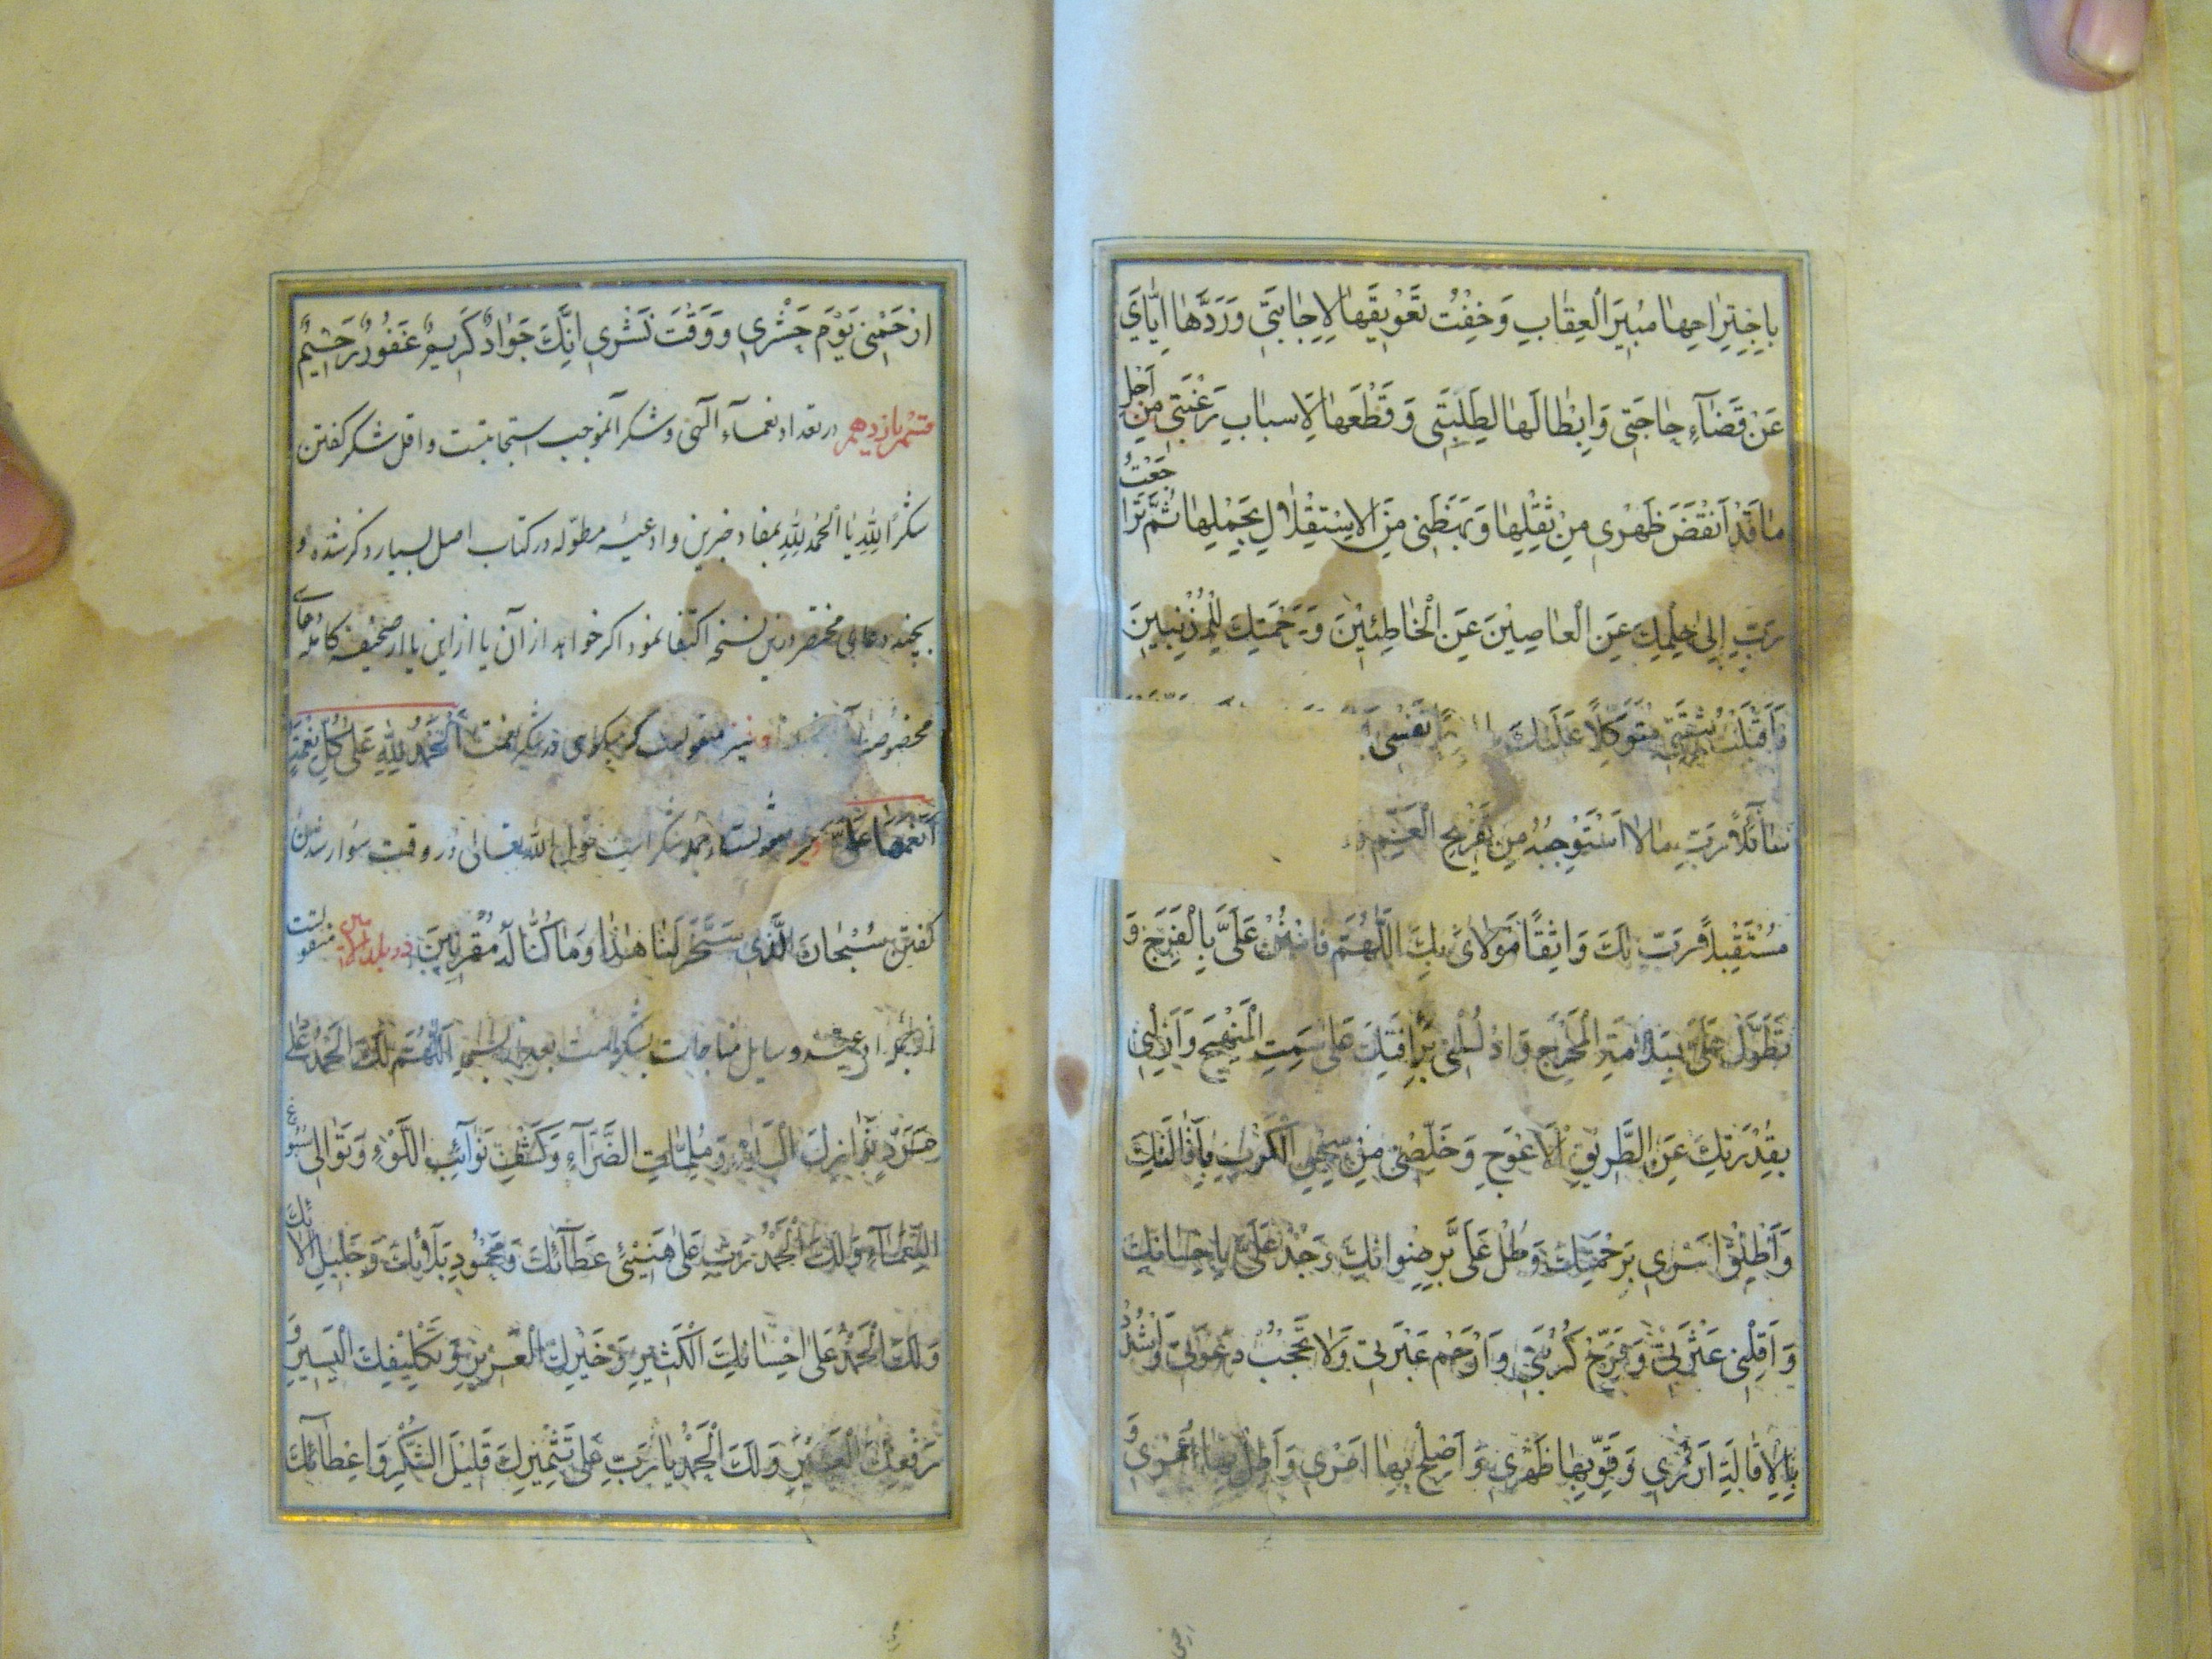 بِاجْتِرَاحِهَا مُبِيرَ الْعِقَابِ وَخِفْتُ تَعْوِيقَهَا لِاِجَابَتِي وَرَدَّهَا اِيَّايَ
عَنْ قَضَاۤءِ حَاجَتِي وَاِبْطَالَهَا لِطَلِبَتِي وَقَطْعَهَا لِاَسبابِ رَغْبَتِي مِنْ اَجْلِ
مَا قَدْ اَنْقَضَ ظَهْرِي مِنْ ثِقْلِهَا وَبَهَظَنِي مِنَ الْاِسْتِقْلَالِ بِحَمْلِهَا ثُمَّ تَرَاجَعْتُ
رَبِّ اِلىٰ حِلْمِكَ عَنِ الْعَاصِيْنَ عَنِ الْخَاطِئِيْنَ وَرَحْمَتِكَ لِلْمُذْنِبِينَ
فَاَقْبَلْتُ بِثِقَتِي مُتَوَكِّلًا عَلَيْكَ نَفْسِي
سَاۤئِلًا رَبِّ مالا اَسْتَوْجِبُهُ مِنْ تَفْرِيجِ الْغَمِّ
مُسْتَقِيلًا رَبِّ لَكَ وَاثِقًا مَوْلَايَ بِكَ اَللّٰهُمَّ فَامْنُنْ عَلَيَّ بِالْفَرَجِ وَ
تَطَوَّلْ عَلَيَّ بِسَلَامَةِ الْمَخْرَجِ وَادْلُلْنِي بِرَأْفَتِكَ عَلىٰ سَمْتِ الْمَنْهَجِ وَاَزِلْنِي
بِقُدْرَتِكَ عَنِ الطَّرِيقِ الْاَعْوَجِ وَخَلِّصْنِي مِنْ سِجْنِ الْكَرْبِ بِاِقَالَتِكَ
وَاَطْلِقْ اَسْرِي بِرَحْمَتِكَ وَطُلْ عَلَيَّ بِرِضْوانِكَ وَجُدْ عَلَيَّ بِاِحْسَانِكَ
وَاَقِلْنِي عَثْرَتِي وَفَرِّجْ كُرْبَتِي وَارْحَم عَبْرَتِي وَلَا تَحْجُبْ دَعْوَتِي وَاشْدُدْ
بِالْاِقَالَةِ اَزْرِي وَقَوِّ بِهَا ظَهْرِي وَاَصْلِحْ بِهَا اَمْرِي وَاَطِلْ بِهَا عُمْرِي وَ
ارْحَمْنِي يَوْمَ حَشْرِي وَوَقْتَ نَشْرِي اِنَّكَ جَوَادٌ كَرِيمٌ غَفُورٌ رَحِيْمٌ
قسم يازدهم در تعداد نعماۤء آلهى و شكر آنموجب استجابتست و اقل شكر كفتن
شكرًا لِلّٰهِ يا اَلْحَمْدُ لِلّٰهِ بمفاد خبرين و ادعيۀ مطوّله در كتاب اصل بسيار ذكر شده و
بچند دعاى مختصر درين نسخه اكتفا نمود اكر خواهد از آن يا از اين يا از صحيفۀ كامله دعاى
مخصوصۀ نيز منقولست كه نيكوى در شكر نعمت اَلْحَمْدُ لِلّٰهِ عَلىٰ كُلِّ نِعْمَةٍ
اَنْعَمَهَا عَلَيَّ شكر است قول الله تعالى در وقت سوار شدن
كفتن سُبْحَانَ الَّذِي سَخَّرَ لَنَا هٰذَا وَمَا كُنَّا لَهُ مُقْرِنِينَ در بلد الامين منقولست
از جمله ادعيه وسايل مناجات بشكر است بعد بسم اَللّٰهُمَّ لَكَ الْحَمْدُ عَلىٰ
مَرَدِّ نَوَازِلِ الْبَلَاۤءِ وَمُلِمَّاتِ الضَّرَّاۤءِ وَكَشْفِ نَوَاۤئِبِ اللَّأْوَاۤءِ وَتَوَالِي سُبُوغِ
النَّعْمَاۤءِ وَلَكَ الْحَمْدُ رَبِّ عَلىٰ هَنِيْئِ عَطَاۤئِكَ وَمَحْمُودِ بَلَاۤئِكَ وَجَلِيلِ اٰلَاۤئِكَ
وَلَكَ الْحَمْدُ عَلىٰ اِحْسَانِكَ الْكَثِيرِ وَخَيْرِكَ الْعَزِيزِ وَتَكْلِيْفِكَ الْيَسِيرِ وَ
دَفْعِكَ الْعَسِيْرِ وَلَكَ الْحَمْدُ يَا رَبِّ عَلىٰ تَثْمِيْرِكَ قَلِيْلَ الشُّكْرِ وَاِعْطَاۤئِكَ